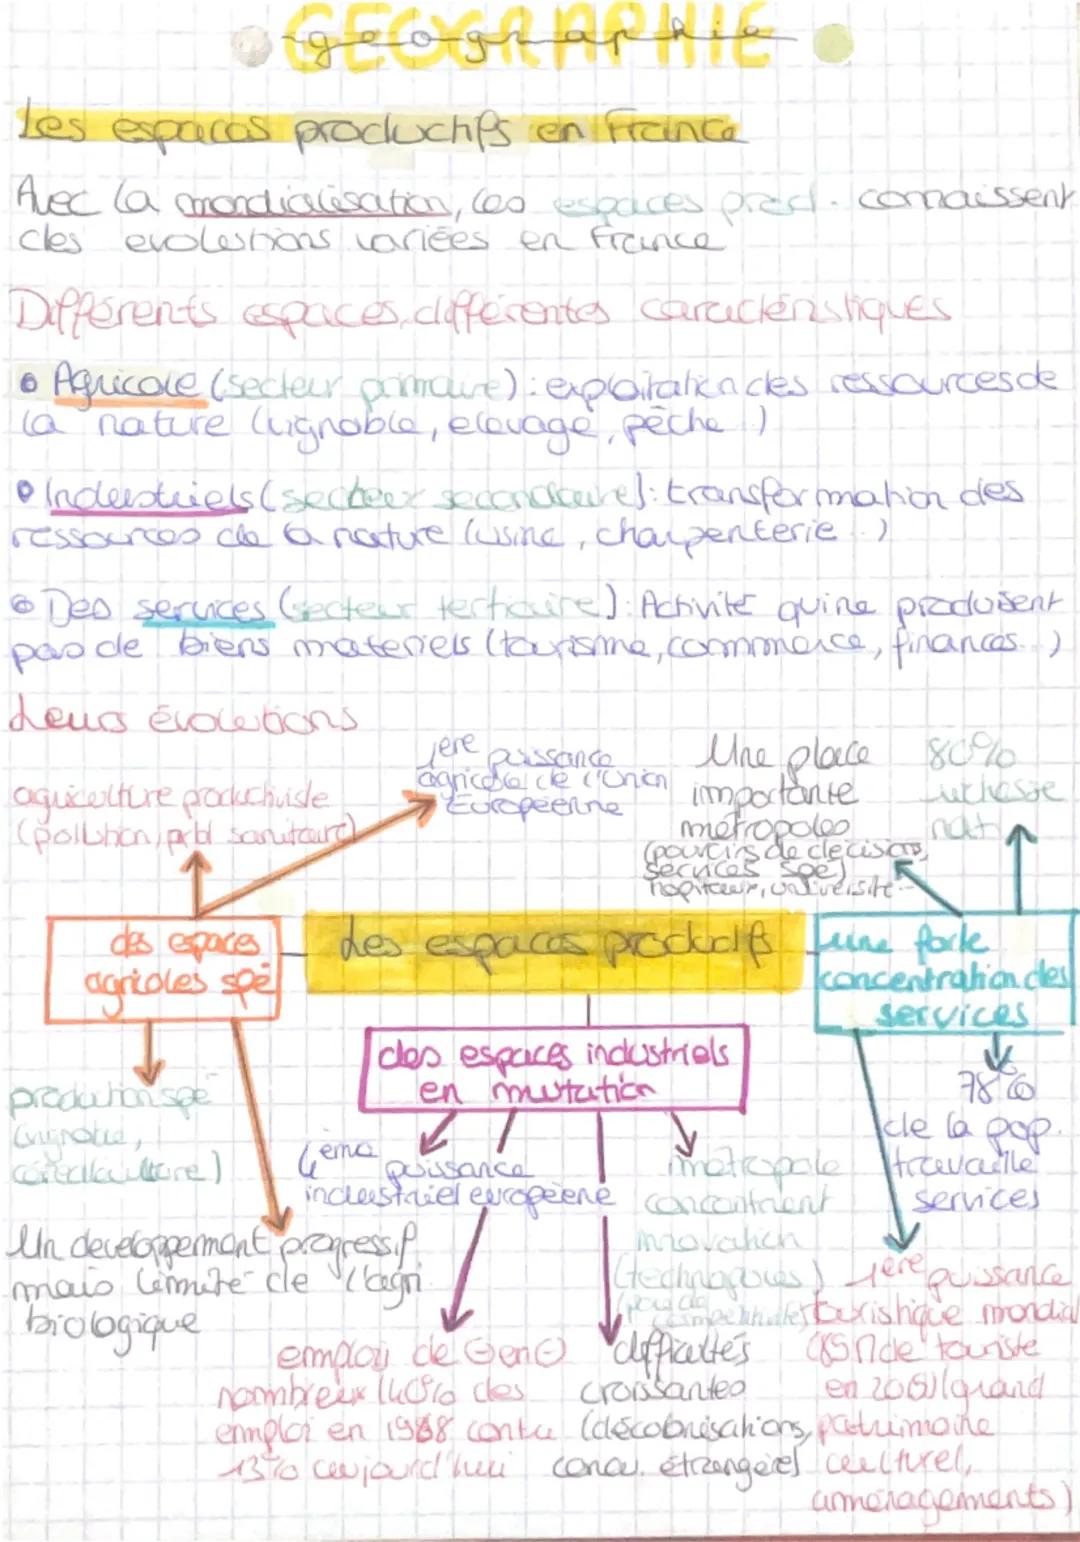 GEOGRAPHIE
geographie
Les espaces productifs en France
Avec la mondialisation, les espaces prod. connaissent
des evolutions variées en France
Différents espaces, différentes caractéristiques
Agricole (secteur primaire) : exploitation des ressources de
la nature (vignoble, elevage, pêche..)
Industriels (secteur secondaire) : transformation des
ressources de la nature (usine, charpenterie..)
Des services (secteur tertiaire) : Activité qui ne produisent
pas de biens materiels (tourisme, commmerce, finances...)
Leurs évolutions
agriculture productiviste
(pollution, prbl sanitaire)
1ere puissance
agricole de l'Union
Européenne
Une place
importante
métropoles
(pouvoirs de decisions,
services spé)
hopitaux, université..
80%
richesse
nat
des espaces
agricoles spé
Les espaces productifs
une forte
concentration des
services
des espaces industriels
en mutation
production spé
(vignoble,
céréaliculture)
Un developpement progressif
mais limité de l'agri.
biologique
4eme puissance
industriel européene
métropole
concentrent
innovation
(technopoles)
78%
de la pop.
travaille
services
emploi de ⊖ en ⊖
nombreux (40% des
emploi en 1988 contre
13% aujourd'hui
difficultés
croissantes
(délocalisations,
conc. étrangère)
1ere puissance
touristique mondial
(85M de touriste
grand
patrimoine
culturel,
aménagements)